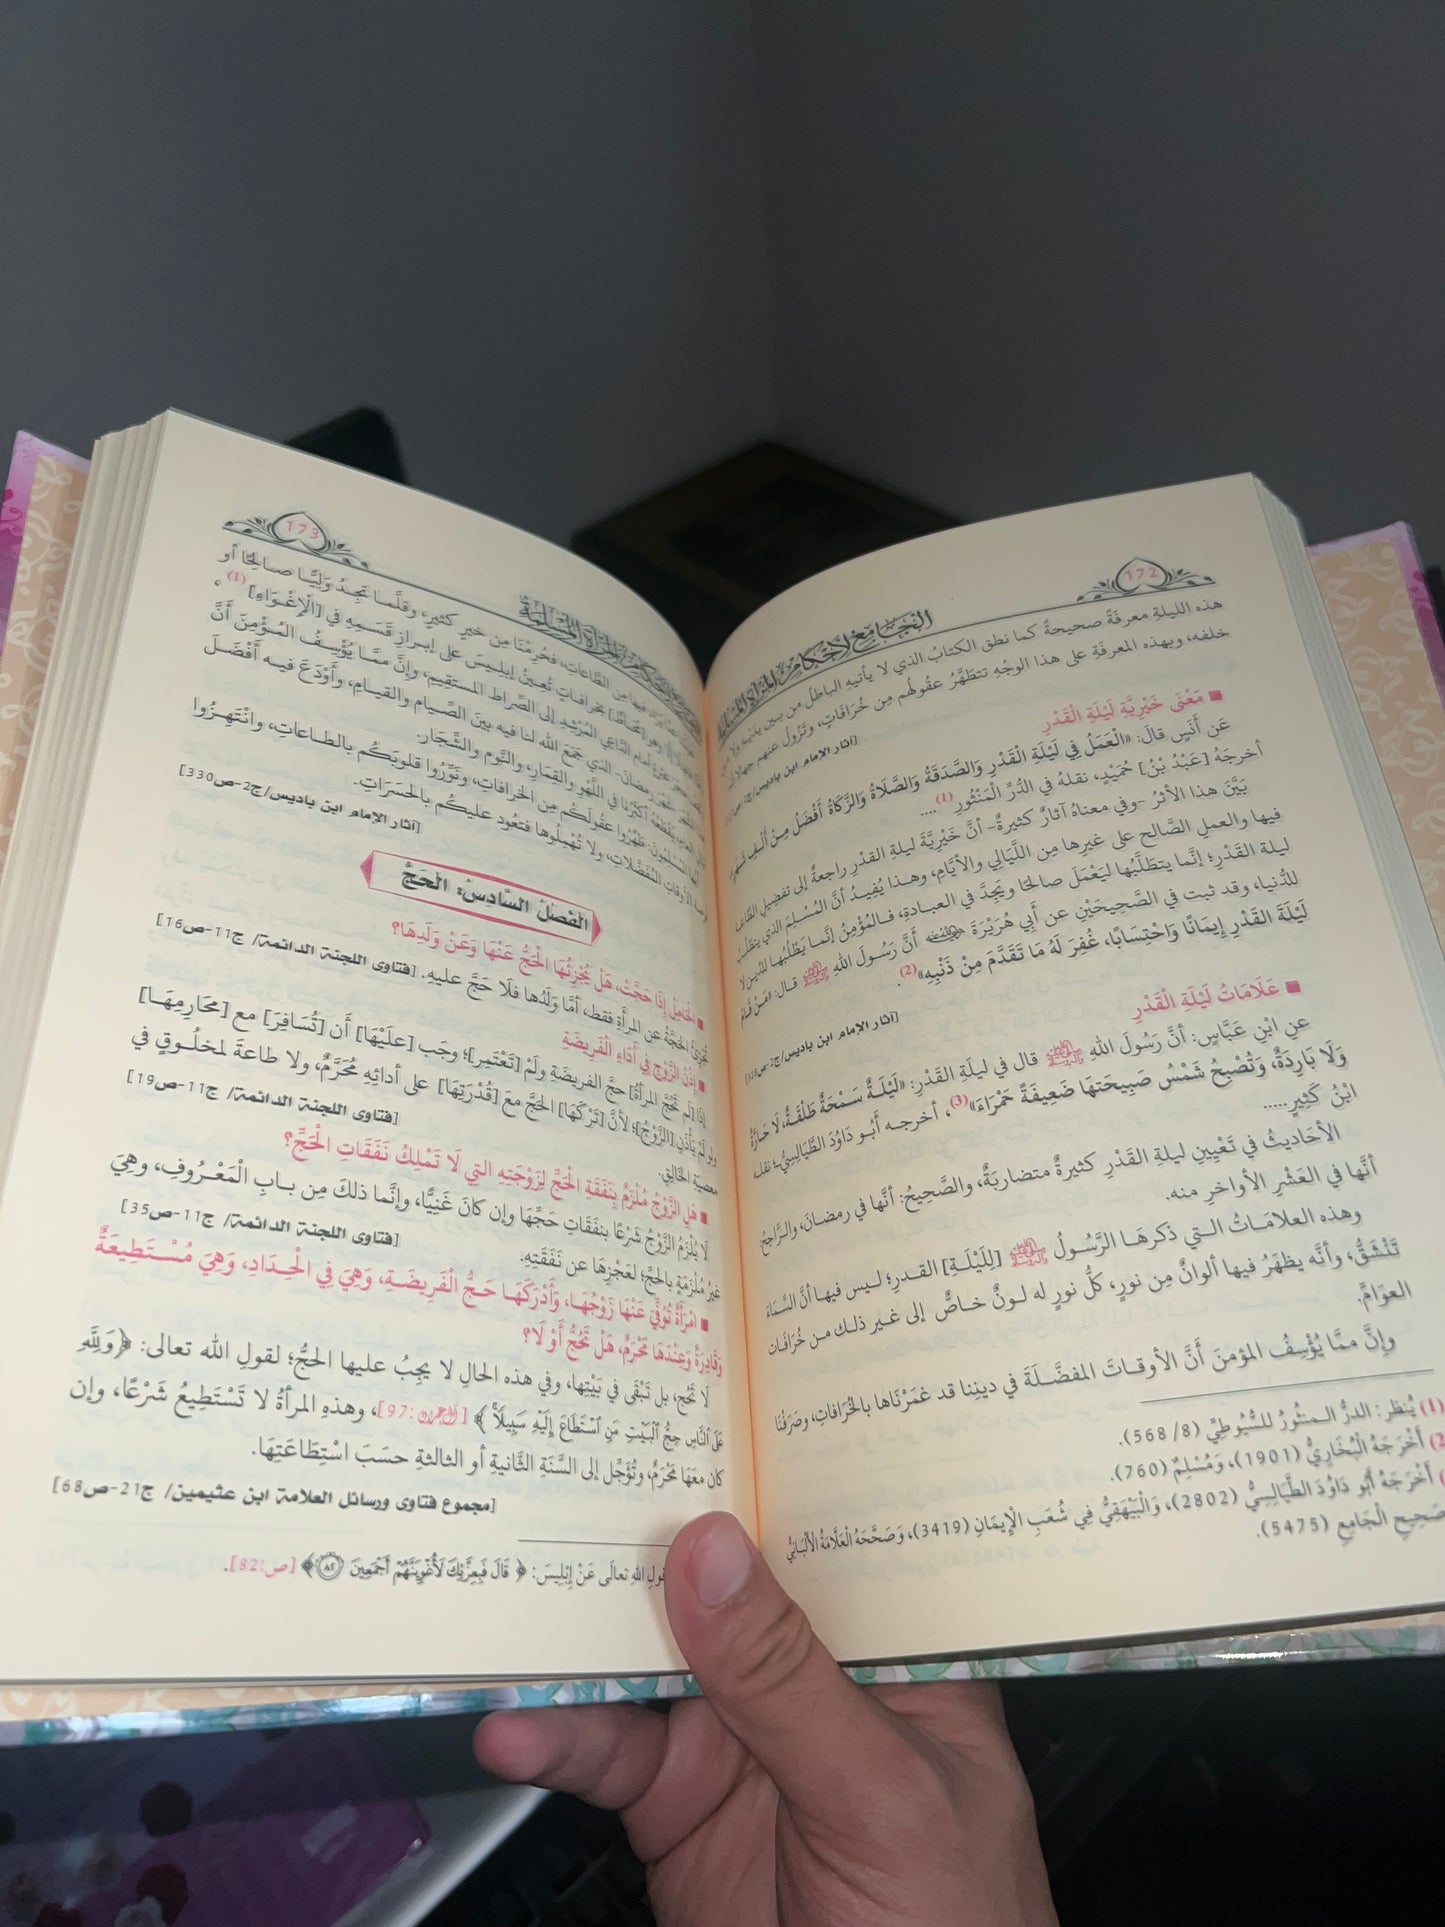 172
الجامع لأحكام المرأة المسلمة
هذه الليلةِ معرفَةً صحيحةً كما نطق الكتابُ الذي لا يأتيهِ الباطلُ من بين يديْهِ ولا من
خلفه، وبهذه المعرفَةِ على هذا الوجْهِ تتطَهَّرُ عقُولُهم مِن خُرَافَاتٍ، وتَزُول عنهم جهالات
[آثار الإمام ابن باديس/ج2-ص
■ مَعْنَى خَيْرِيَّةِ لَيْلَةِ الْقَدْرِ
عَن أَنَسٍ قالَ: «الْعَمَلُ فِي لَيْلَةِ الْقَدْرِ وَالصَّدَقَةُ وَالصَّلَاةُ وَالزَّكَاةُ أَفْضَلُ مِنْ أَلْفِ شَهْرٍ
أخرجَهُ [عَبْدُ بْنُ] حُمَيْدٍ، نقلهُ في الدُّرِّ الْمَنْثُورِ(1)....
بَيَّنَ هذا الأثرُ -وفي معناهُ آثارٌ كثيرةٌ- أنَّ خَيْرِيَّةَ ليلةِ القدْرِ راجعةٌ إلى تفضِيلِ الطَّاعة
فيها والعملِ الصَّالح على غيرِها مِن اللَّيَالِي والأيَّامِ، وهذا يُفِيدُ أنَّ المُسْلِمَ الذي يتطَلَّبُ
ليلة القَدْرِ؛ إنَّما يتطَلَّبُها ليَعْمَلَ صالحًا ويَجِدَّ في العبادةِ، فالمُؤْمِنُ إنَّما يَطْلُبُها للدِّينِ لا
للدُّنيا، وقد ثبت في الصَّحِيحَيْنِ عن أَبِي هُرَيْرَةَ رضي الله عنه أَنَّ رَسُولَ اللهِ ﷺ قال: «مَنْ قَامَ
لَيْلَةَ القَدْرِ إِيمَانًا وَاحْتِسَابًا، غُفِرَ لَهُ مَا تَقَدَّمَ مِنْ ذَنْبِهِ»(2).
[آثار الإمام ابن باديس/ج2-ص328]
■ عَلَامَاتُ لَيْلَةِ الْقَدْرِ
عنِ ابْنِ عَبَّاسٍ: أنَّ رَسُولَ اللهِ ﷺ قال في ليلَةِ القَدْرِ: «لَيْلَةٌ سَمْحَةٌ طَلْقَةٌ، لَا حَارَّةٌ
وَلَا بَارِدَةٌ، وَتُصْبِحُ شَمْسُ صَبِيحَتهَا ضَعِيفَةً حَمْرَاءَ»(3)، أخرجه أَبُو دَاوُدَ الطَّيَالِسِيُّ، نقله
ابْنُ كَثِيرٍ.....
الأحَاديثُ في تَعْيِينِ ليلةِ القَدْرِ كثيرةٌ متضاربَةٌ، والصَّحِيحُ: أنَّها في رمضانَ، والرَّاجِحُ
أنَّها في العَشْرِ الأواخرِ منه.
وهذه العلامَاتُ التي ذكرهَا الرَّسُولُ ﷺ [لِلَيْلَةِ] القدرِ؛ ليس فيها أنَّ السَّمَاءَ
تَنْشَقُّ، وأنَّه يظهَرُ فيها ألوانٌ مِن نورٍ، كلُّ نورٍ له لونٌ خاصٌّ إلى غير ذلك من خُرَافَات
العوَامِّ.
وإنَّ ممَّا يُؤْسِفُ المؤمنَ أنَّ الأوقاتَ المفضَّلَةَ في دينِنا قد غمَرْنَاها بالخُرَافاتِ، وصَرَفْنَا
(1) يُنظر: الدرُّ المنثُورُ للسُّيُوطِيِّ (8/ 568).
(2 أَخْرَجَهُ الْبُخَارِيُّ (1901)، وَمُسْلِمٌ (760).
أَخْرَجَهُ أَبُو دَاوُدَ الطَّيَالِسِيُّ (2802)، وَالْبَيْهَقِيُّ فِي شُعَبِ الْإِيمَانِ (3419)، وَصَحَّحَهُ الْعَلَّامَةُ الْأَلْبَانِيُّ
صَحِيحِ الْجَامِعِ (5475).
173
لأحكام المرأة المسلمة
فيها من الطَّاعاتِ، فحُرِمْنَا مِن خيرٍ كثيرٍ، وقلَّما تجِدُ وَلِيًّا صالحًا أو
إلَّا وهو [محَاطٌ] بخرافاتٍ تُعِينُ إبليسَ على إبرازِ قَسَمِهِ في [الْإِغْوَاءِ](1)،
عثرةً أمام الدَّاعِي المُرْشِدِ إلى الصِّراط المستقِيمِ، وإنَّ ممَّا يُؤْسِفُ المُؤْمِنَ أنَّ
شهْرَ رمضانَ- الذي جَمَعَ الله لنا فيه بينَ الصِّيام والقيامِ، وأَوْدَعَ فيه أَفْضَلَ
العامِ، يقْطَعُهُ أكثرُنا في اللَّهْوِ والقِمَارِ، والنَّوم والشِّجَارِ.
أيُّها المسْلِمُونَ، طَهِّرُوا عقُولَكُم مِن الخرافاتِ، ونَوِّرُوا قلوبَكُم بالطاعاتِ، وانْتَهِزُوا
فرصةَ الأوقاتِ المُفَضَّلاتِ، ولا تُهْمِلُوها فتعُود عليكُم بالحسَرَاتِ.
[آثار الإمام ابن باديس/ج2-ص330]
الفصل السادس: الحج
■ الْحَامِلُ إِذَا حَجَّتْ، هَلْ يُجْزِئُهَا الْحَجُّ عَنْهَا وَعَنْ وَلَدِهَا؟
تُجْزِئُ الحَجَّةُ عن المرأةِ فقط، أمَّا وَلَدُها فلَا حَجَّ عليهِ. [فتاوى اللجنة الدائمة/ ج11-ص16]
■ إِذْنُ الزَّوْجِ فِي أَدَاءِ الْفَرِيضَةِ
إذَا [لَم تَحُجَّ المرأةُ] حجَّ الفريضَةِ ولَمْ [تَعْتَمِر]؛ وجَب [علَيْهَا] أَن [تُسَافِرَ] مع [مَحَارِمِهَا]
ولو لَمْ يَأْذَنِ [الزَّوْجُ]؛ لأنَّ [تَرْكَهَا] الحَجَّ معَ [قُدْرَتِهَا] على أدائِهِ مُحَرَّمٌ، ولا طاعةَ لمخلُوقٍ في
معصيَةِ الخَالِقِ.
[فتاوى اللجنة الدائمة/ ج11-ص19]
■ هَلِ الزَّوْجُ مُلْزَمٌ بِنَفَقَةِ الْحَجِّ لِزَوْجَتِهِ التِي لَا تَمْلِكُ نَفَقَاتِ الْحَجِّ؟
لَا يُلْزَمُ الزَّوْجُ شَرْعًا بنفَقَاتِ حَجِّهَا وإن كانَ غَنِيًّا، وإنَّما ذلكَ مِن بابِ الْمَعْرُوفِ، وهِيَ
غيرُ مُلْزَمَةٍ بالحجِّ؛ لعَجْزِهَا عن نَفَقَتِهِ.
[فتاوى اللجنة الدائمة/ ج11-ص35]
■ امْرَأَةٌ تُوُفِّيَ عَنْهَا زَوْجُهَا، وَأَدْرَكَهَا حَجُّ الْفَرِيضَةِ، وَهِيَ فِي الْحِدَادِ، وَهِيَ مُسْتَطِيعَةٌ
وَقَادِرَةٌ وَعِنْدَهَا مَحْرَمٌ، هَلْ تَحُجُّ أَوْ لَا؟
لَا تَحُج، بل تَبْقَى في بَيْتِها، وفي هذه الحالِ لا يجِبُ عليها الحجُّ؛ لقولِ الله تعالى: ﴿وَلِلَّهِ
عَلَى ٱلنَّاسِ حِجُّ ٱلْبَيْتِ مَنِ ٱسْتَطَاعَ إِلَيْهِ سَبِيلًا﴾ [آل عمران: 97]، وهذهِ المرأةُ لا تَسْتَطِيعُ شَرْعًا، وإن
كان معَهَا مَحْرَمٌ، وتُؤَجَّل إلى السَّنَةِ الثَّانيةِ أو الثالثةِ حسَبَ اسْتِطَاعَتِهَا.
[مجموع فتاوى ورسائل العلامة ابن عثيمين/ ج21-ص68]
قولِ اللهِ تعالَى عَنْ إِبْلِيسَ: ﴿ قَالَ فَبِعِزَّتِكَ لَأُغْوِيَنَّهُمْ أَجْمَعِينَ ٨٢﴾ [ص:82].